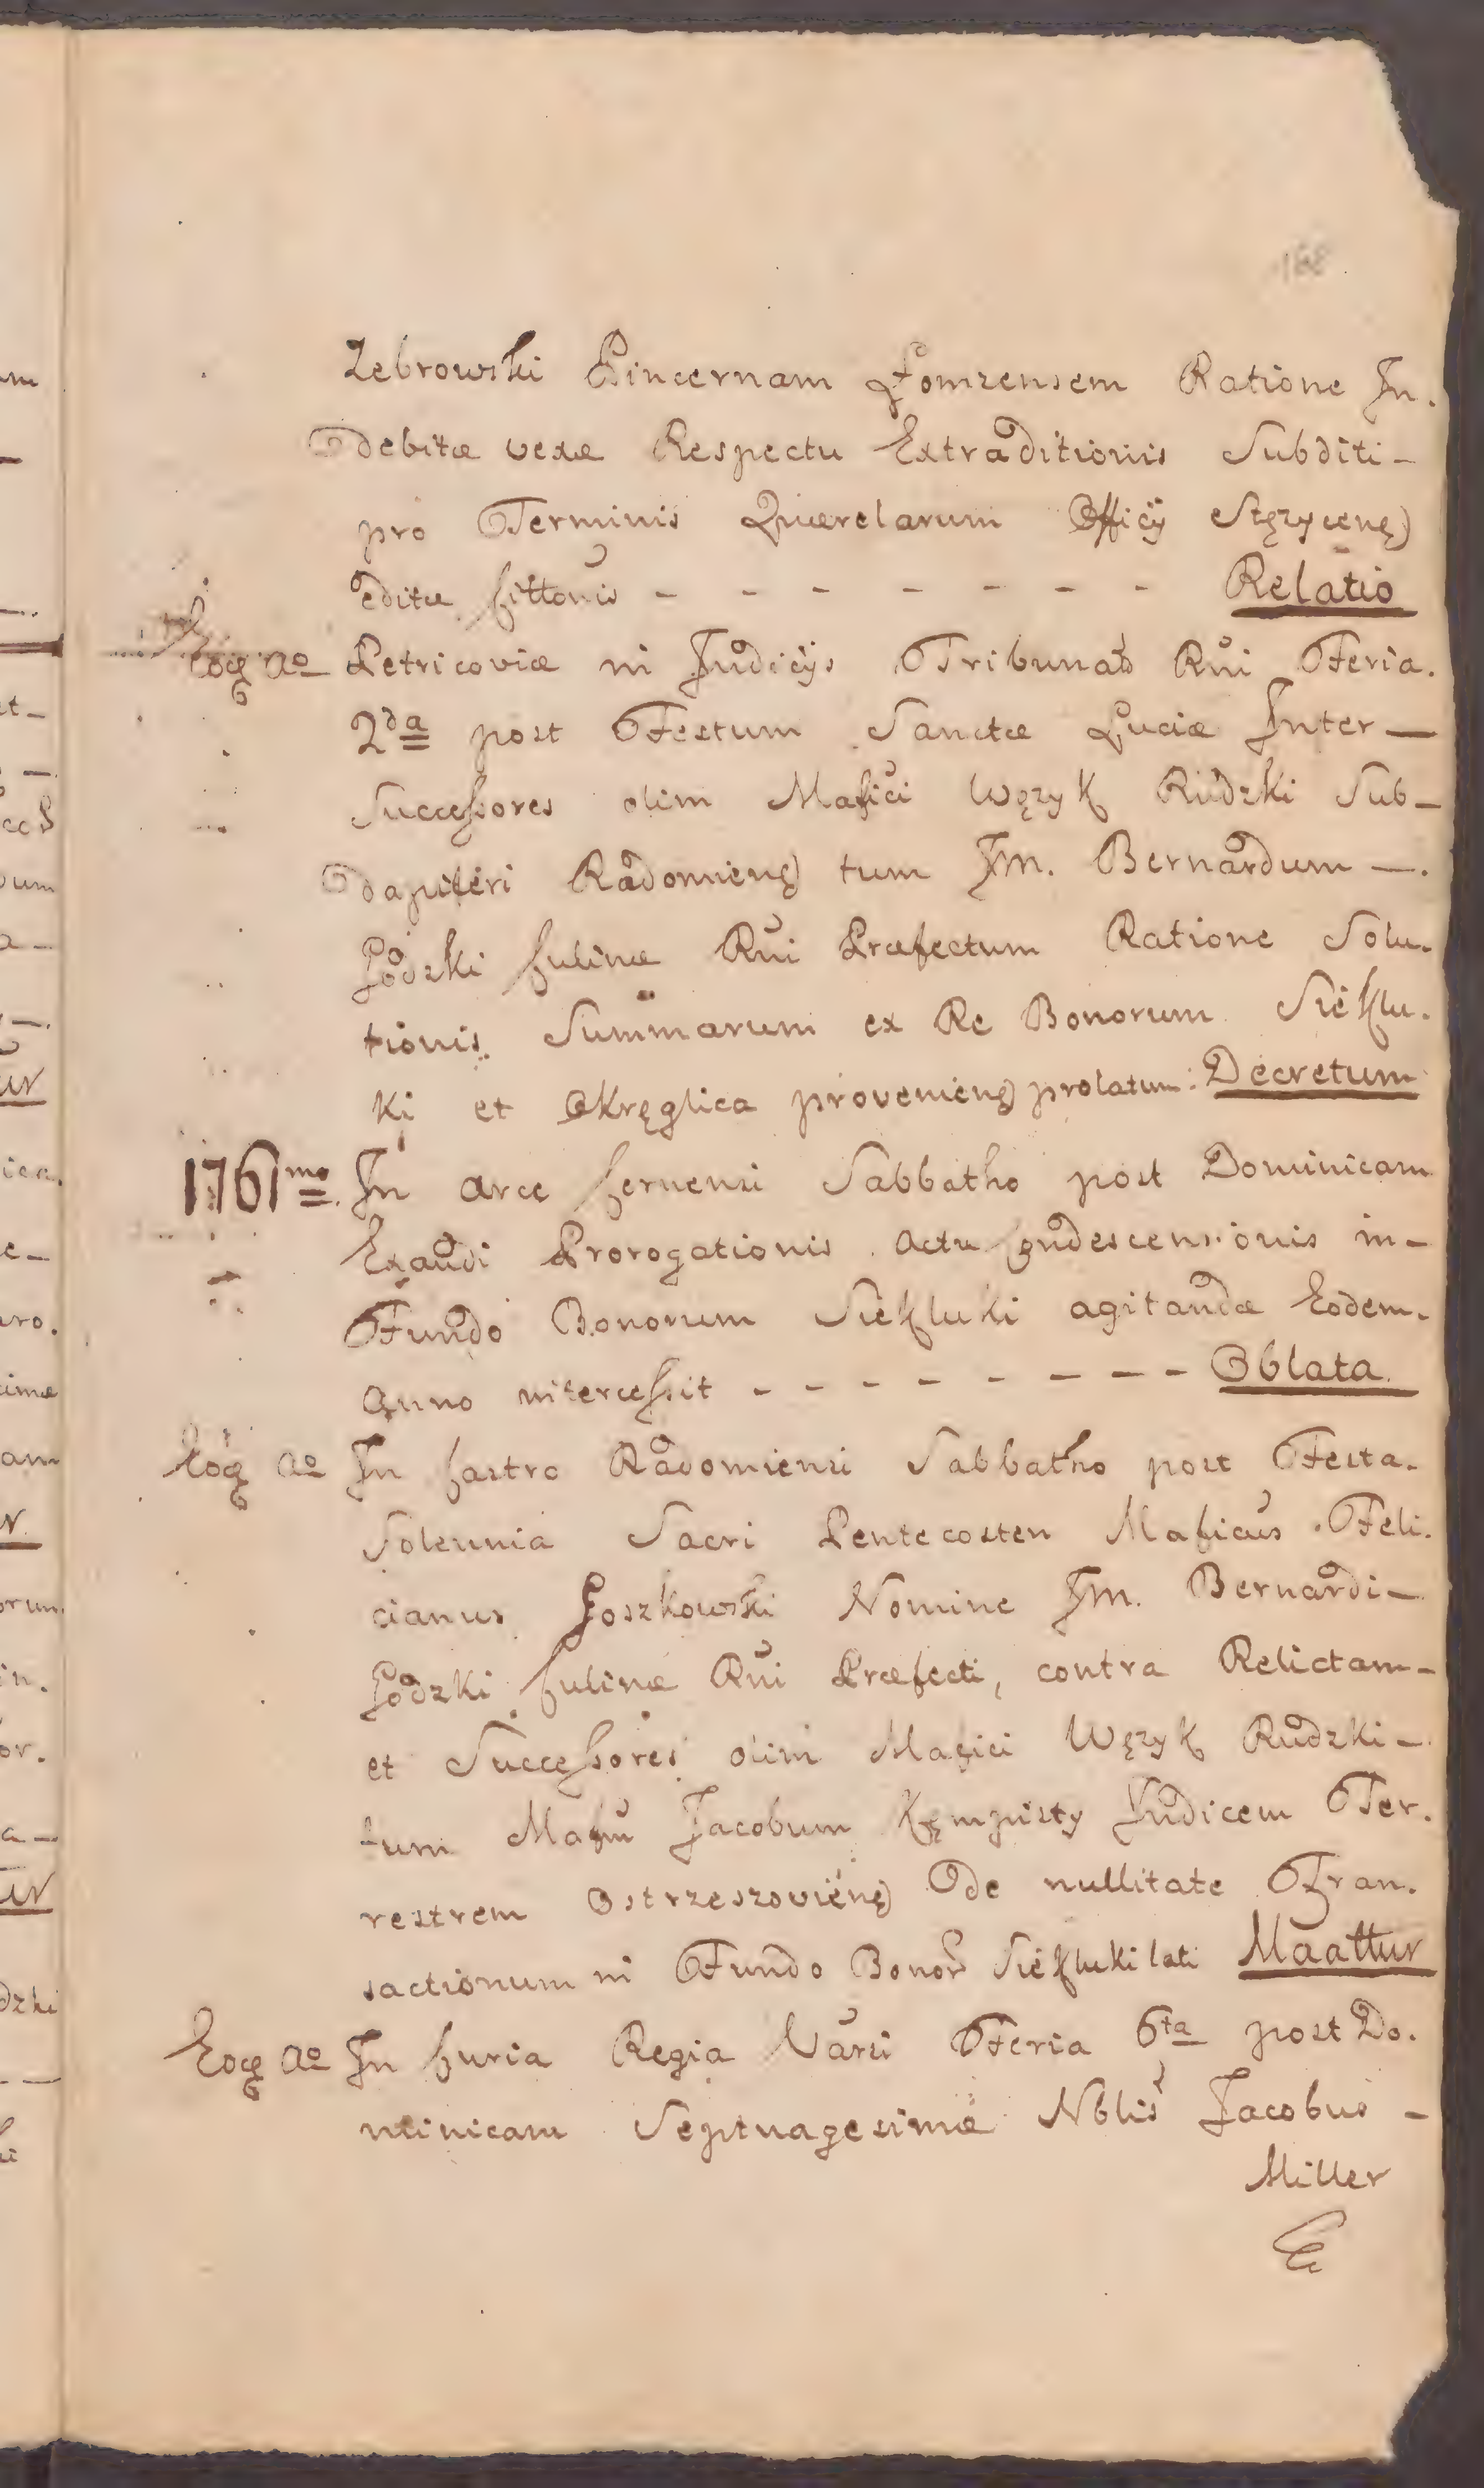 168
Zebrowski Pincernam Łomzensem Ratione In.
debitæ vexæ Respectu Extraditionis Subditi-
pro Terminis Querelarum Officÿ Stęzycen̄
editæ Cittonis - - - - - - - - Relatio
Eoq̄ Aº Petricoviæ in Judicÿs Tribunal̄ Rn̄i Feria.
2da post Festum Sanctæ Luciæ Inter-
Successores olim Mafici Węzyk Rudzki Sub-
dapiferi Radomien̄ tum Jm. Bernardum -.
Godzki Culinæ Rn̄i Præfectum Ratione Solu-
tionis Summarum ex Re Bonorum Siekłu.
ki et Okręglica provenien̄ prolatum: Decretum
1761mo In Arce Cernensi Sabbatho post Dominicam
Exaudi Prorogationis Actu Condescensionis in-
Fundo Bonorum Siekłuki agitandæ Eodem.
Anno intercessit - - - - - - - - Oblata.
Eoq̄ Aº In Castro Radomiensi Sabbatho post Festa.
Solennia Sacri Pentecosten Maficus Feli.
cianus Goszkowski Nomine Jm. Bernardi-
Godzki Culinæ Rn̄i Præfecti, contra Relictam-
et Successores olim Mafici Węzyk Rudzki-
tum Mafm̄ Jacobum Kęmpisty Judicem Ter.
restrem Ostrzeszovien̄ De nullitate Tran.
sactionum in Fundo Bonor̄ Siekłuki lati Maattur
Eoq̄ Aº In Curia Regia Varsi Feria 6ta post Do.
minicam Septuagesimæ Nblis Jacobus -
Miller